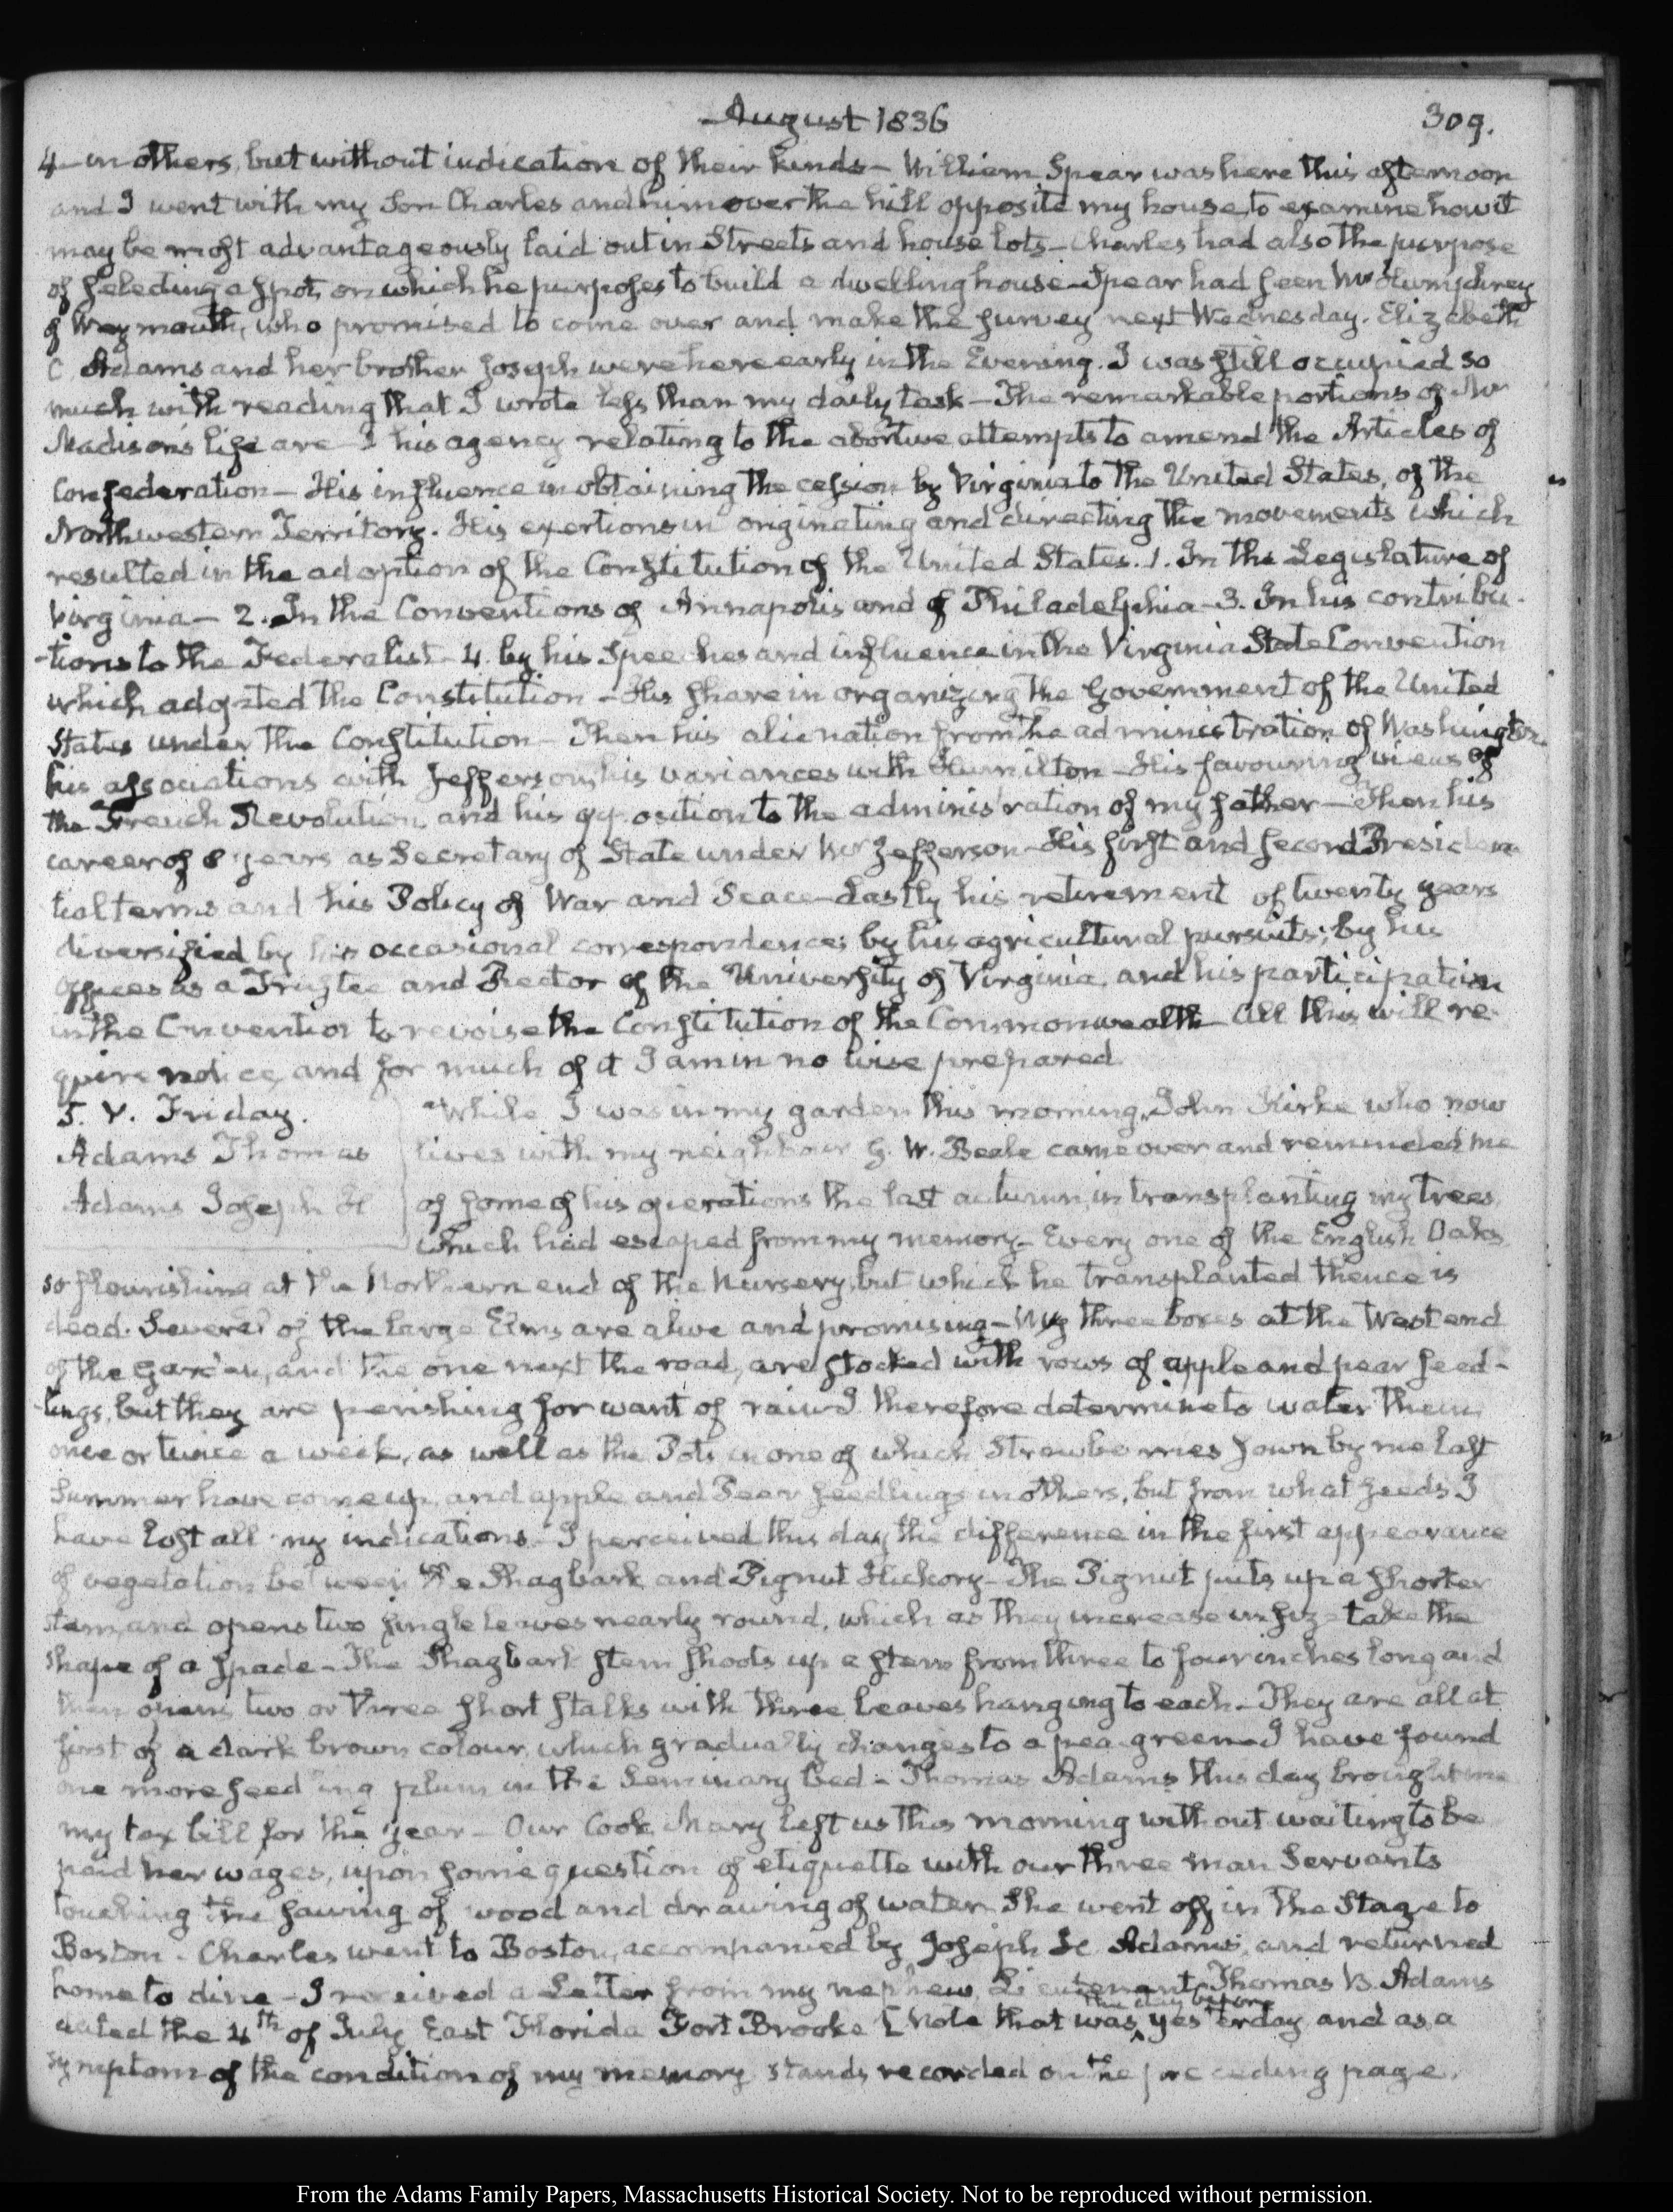 August 1836
309.
4 in others, but without indication of their kinds – William Spear was here this afternoon
and I went with my Son Charles and him over the hill opposite my house, to examine how it
may be most advantageously laid out in Streets and house lots – Charles had also the purpose
of selecting a spot, on which he purposes to build a dwelling house – Spear had seen Mr Humphrey
of Weymouth, who promised to come over and make the survey next Wednesday. Elizabeth
C. Adams and her brother Joseph were here early in the Evening. I was still occupied so
much with reading that I wrote less than my daily task – The remarkable portions of Mr
Madison's life are his agency relating to the abortive attempts to amend the Articles of
Confederation – His influence in obtaining the cession by Virginia to the United States, of the
Northwestern Territory. His exertions in originating and directing the movements which
resulted in the adoption of the Constitution of the United States. 1. In the Legislature of
Virginia – 2. In the Conventions of Annapolis and of Philadelphia – 3. In his contribu-
-tions to the Federalist – 4. by his Speeches and influence in the Virginia State Convention
which adopted the Constitution – His share in organizing the Government of the United
States under the Constitution – Then his alienation from the administration of Washington
his associations with Jefferson, his variances with Hamilton – His favouring views of
the French Revolution, and his opposition to the administration of my father – Then his
career of 8 years as Secretary of State under Mr Jefferson – His first and second Presiden
tial terms and his Policy of War and Peace – Lastly his retirement of twenty years
diversified by his occasional correspondence; by his agricultural pursuits; by his
offices as a Trustee and Rector of the University of Virginia, and his participation
in the Convention to revise the Constitution of the Commonwealth – All this will re-
quire notice, and for much of it I am in no wise prepared.
5. V. Friday.
Adams Thomas
Adams Joseph H
While I was in my garden this morning, John Kirke who now
lives with my neighbour G. W. Beale came over and reminded me
of some of his operations the last autumn, in transplanting my trees,
which had escaped from my memory – Every one of the English Oaks
so flourishing at the Northern end of the Nursery, but which he transplanted thence is
dead. Several of the large Elms are alive and promising – My three boxes at the West end
of the garden, and the one next the road, are stocked with rows of apple and pear seed-
-lings, but they are perishing for want of rain – I therefore determine to water them
once or twice a week, as well as the Pots in one of which Strawberries sown by me last
Summer have come up, and apple and Pear seedlings in others, but from what seeds I
have lost all my indications. I perceived this day the difference in the first appearance
of vegetation between the Shagbark and Pignut Hickory – The Pignut puts up a shorter
stem, and opens two single leaves nearly round, which as they increase in size take the
shape of a spade – The Shagbark stem shoots up a stem from three to four inches long and
then opens two or three short stalks with three leaves hanging to each – They are all at
first of a dark brown colour, which gradually changes to a pea-green – I have found
one more seedling plum in the Seminary bed – Thomas Adams this day brought me
my tax bill for the year – Our Cook Mary left us this morning without waiting to be
paid her wages, upon some question of etiquette with our three man Servants
touching the sawing of wood and drawing of water. She went off in the Stage to
Boston. Charles went to Boston, accompanied by Joseph H. Adams, and returned
home to dine – I received a Letter from my nephew, Lieutenant Thomas B. Adams
dated the 4th of July East Florida Fort Brooke [Note that was ^the day before yesterday, and as a
symptom of the condition of my memory stands recorded on the preceding page.
From the Adams Family Papers, Massachusetts Historical Society. Not to be reproduced without permission.